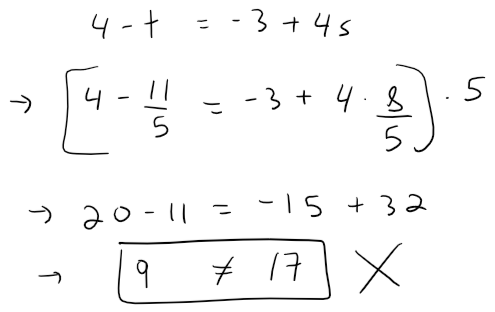 4 - t = -3 + 4s
→ [4 - 11/5 = -3 + 4 · 8/5) · 5
→ 20 - 11 = -15 + 32
→ 9 ≠ 17 X